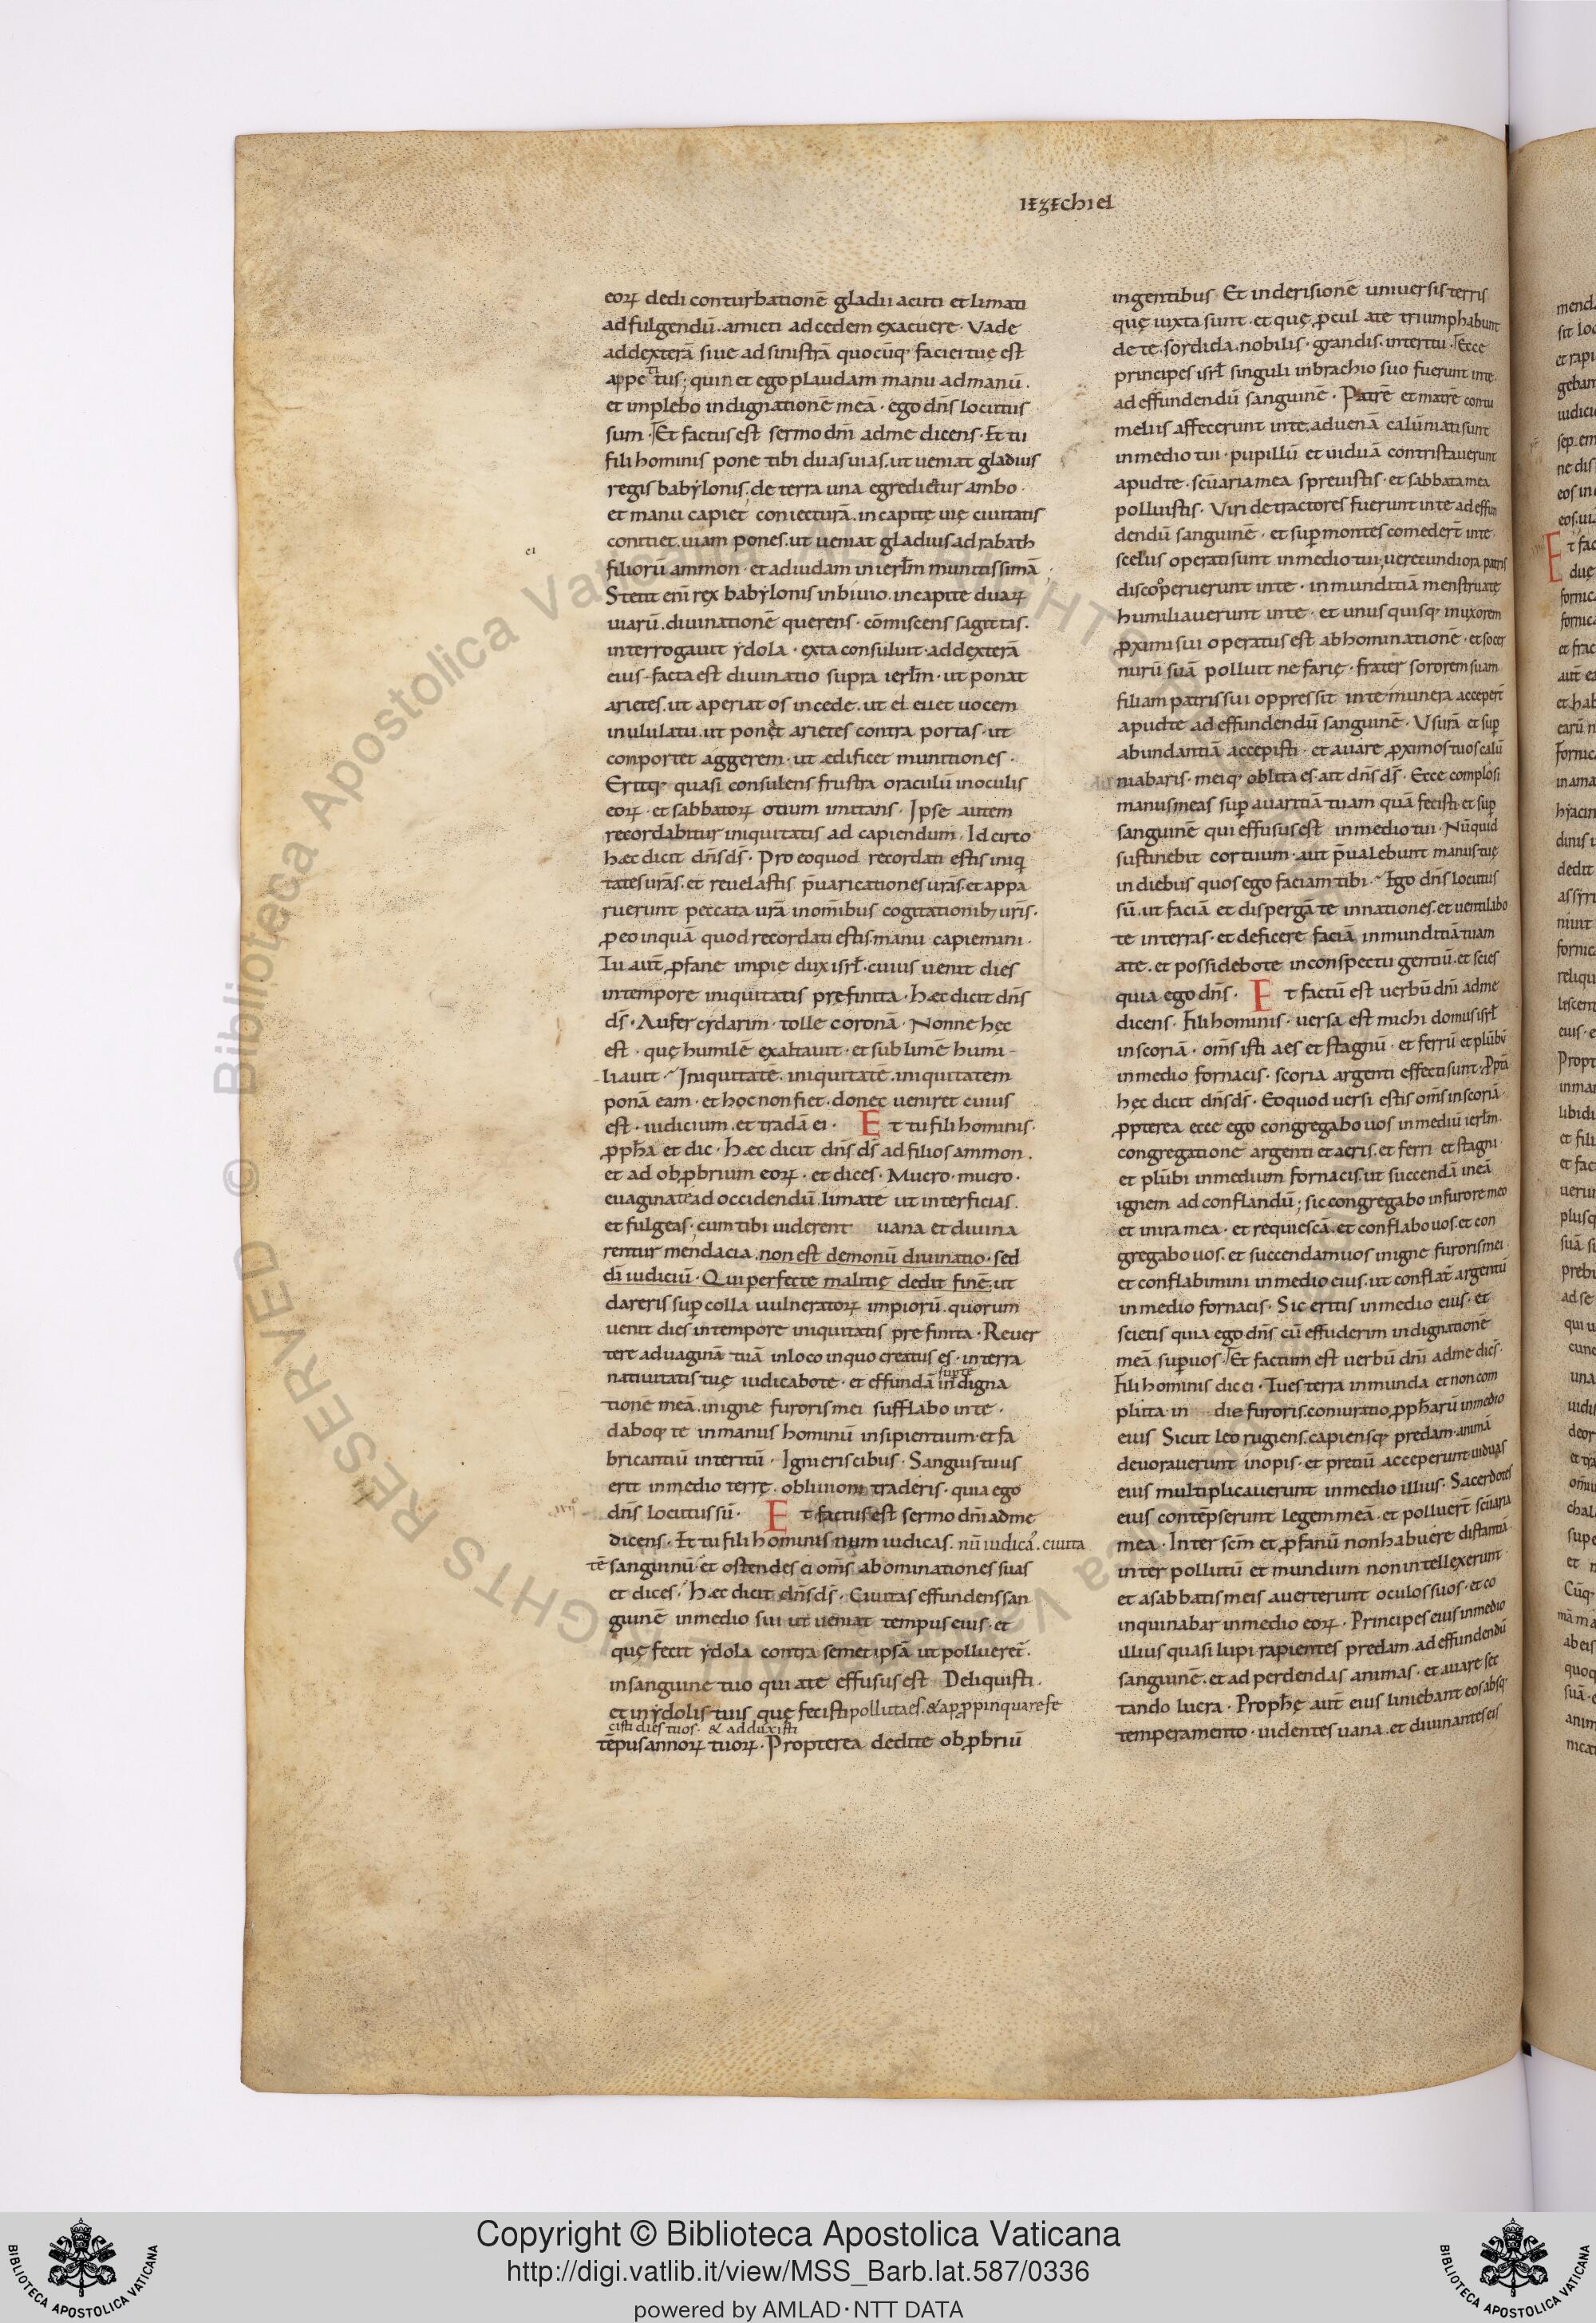 IEZEchiel
eoꝝ dedi conturbationē gladii acuti et limati
ad fulgendū. amicti ad cedem exacuere. Vade
ad dexterā siue ad sinistrā quocūq; faciei tuę est
appetitus; quin et ego plaudam manu ad manū.
et implebo indignationē meā. ego dn̄s locutus
sum. Et factus est sermo dn̄i ad me dicens. Et tu
fili hominis pone tibi duas uias. ut ueniat gladius
regis babylonis. de terra una egredietur ambo.
et manu capiet coniecturā. in capite uię ciuitatis
coniiciet. uiam pones. ut ueniat gladius ad rabath
ei
filiorū ammon. et ad iudam in ierlm̄ munitissimā;
Stetit eni̅ rex babylonis in biuio. in capite duaꝝ
uiarū. diuinationē querens. cōmiscens sagittas.
interrogauit ydola. exta consuluit. ad dexterā
eius facta est diuinatio supra ierlm̄. ut ponat
arietes. ut aperiat os in cede. ut eleuet uocem
in ululatu. ut ponat arietes contra portas. ut
comportet aggerem. ut ædificet munitiones.
Eritq; quasi consulens frustra oraculū in oculis
eoꝝ. et sabbatoꝝ otium imitans. Ipse autem
recordabitur iniquitatis ad capiendum. Idcirco
hæc dicit dn̄s ds̄. Pro eo quod recordati estis iniq
tates ur̄as. et reuelastis p̄uaricationes ur̄as. et appa
ruerunt peccata ur̄a in om̄ibus cogitationib; ur̄is.
ꝓ eo inquā quod recordati estis. manu capiemini.
Tu aut̄ ꝓfane impie dux isrł. cuius uenit dies
in tempore iniquitatis prefinita. hæc dicit dn̄s
ds̄. Aufer cydarim. tolle coronā. Nonne hęc
est. quę humilē exaltauit. et sublimē humi-
liauit. Iniquitatē. iniquitatē. iniquitatem
ponā eam. et hoc non fiet. donec ueniret cuius
est. iudicium. et tradā ei. Et tu fili hominis.
ꝓph̄a et dic. Hæc dicit dn̄s ds̄ ad filios ammon.
et ad obꝓbrium eoꝝ. et dices. Mucro. mucro.
euaginate ad occidendū. limate ut interficias.
et fulgeas. cum tibi uiderent uana et diuina
rentur mendacia. non est demonū diuinatio. sed
dī iudiciū. Qui perfecte malitię dedit finē. ut
dareris suꝑ colla uulneratoꝝ impiorū. quorum
uenit dies in tempore iniquitatis prefinita. Reuer
tere ad uaginā tuā in loco in quo creatus es. in terra
natiuitatis tuę iudicabo te. et effundā sup te indigna
tionē meā. in igne furoris mei sufflabo in te.
daboq; te in manus hominū insipientium. et fa
bricantiū interitū. Igni eris cibus. Sanguis tuus
erit in medio terrę. obliuioni traderis. quia ego
dn̄s locutus sū. Et factus est sermo dn̄i ad me
dicens. Et tu fili hominis num iudicas. nū iudicas. ciuita
tē sanguinū. et ostendes ei om̄s abominationes suas
et dices. Hæc dicit dn̄s ds̄. Ciuitas effundens san
guinē in medio sui ut ueniat tempus eius. et
quę fecit ydola contra semet ipsā ut pollueret̄.
in sanguine tuo qui a te effusus est Deliquisti.
et in ydolis tuis quę fecisti polluta es. & apꝓpinquare fe
cisti dies tuos. & adduxisti
tēpus annoꝝ tuoꝝ. Propterea dedi te obꝓbriū
in gentibus. Et in derisionē uniuersis terris
quę iuxta sunt. et quę ꝓcul a te triumphabunt
de te. sordida. nobilis. grandis. interitu. Ecce
principes isrł singuli in brachio suo fuerunt in te
ad effundendū sanguinē. Patrē et matrē contu
meliis affecerunt in te. aduenā calūniati sunt
in medio tui. pupillū et uiduā contristauerunt
apud te. sc̄uaria mea spreuistis. et sabbata mea
polluistis. Viri detractores fuerunt in te ad effun
dendū sanguinē. et suꝑ montes comeder̄t in te.
scelus operati sunt in medio tui; uerecundiora patris
discoperuerunt in te. inmunditiā menstruatę
humiliauerunt in te. et unus quisq; in uxorem
ꝓximi sui operatus est abhominationē. et socer
nurū suā polluit nefarię. frater sororem suam
filiam patris sui oppressit in te. munera acceper̄t
apud te ad effundendū sanguinē. Vsurā et suꝑ
abundantiā accepisti. et auare ꝓximos tuos calū
niabaris. meiq; oblita es. ait dn̄s ds̄. Ecce complosi
manus meas suꝑ auaritiā tuam quā fecisti. et suꝑ
sanguinē qui effusus est in medio tui. Nūquid
sustinebit cor tuum. aut p̄ualebunt manus tuę
in diebus quos ego faciam tibi. Ego dn̄s locutus
sū. ut faciā et dispergā te in nationes. et uentilabo
te in terras. et deficere faciā inmunditiā tuam
a te. et possidebo te in conspectu gentiū. et scies
quia ego dn̄s. Et factū est uerbū dn̄i ad me
dicens. Fili hominis. uersa est michi domus isrł
in scoriā. om̄s isti aes et stagnū. et ferrū et plūbū
in medio fornacis. scoria argenti effecti sunt. Ppt̄a
hęc dicit dn̄s ds̄. Eo quod uersi estis om̄s in scoriā.
ꝓpterea ecce ego congregabo uos in mediū ierlm̄.
congregatione argenti et aeris. et ferri et stagni.
et plūbi in medium fornacis. ut succendā in eā
ignem ad conflandū; sic congregabo in furore meo
et in ira mea. et requiescā. et conflabo uos. et con
gregabo uos. et succendam uos in igne furoris mei
et conflabimini in medio eius. ut conflat̄ argentū
in medio fornacis. Sic eritis in medio eius. et
scietis quia ego dn̄s cū effuderim indignationē
meā suꝑ uos. Et factum est uerbū dn̄i ad me dicēs.
Fili hominis dic ei. Tu es terra inmunda et non com
pluta in die furoris. coniuratio ꝓph̄arū in medio
eius Sicut leo rugiens. capiensq; predam. animā
deuorauerunt. inopis. et pretiū acceperunt. uiduas
eius multiplicauerunt in medio illius. Sacerdotes
eius contēpserunt legem meā. et polluer̄t sc̄uaria
mea. Inter sc̄m et ꝓfanū non habuere distantiā.
inter pollutū et mundum non intellexerunt.
et a sabbatis meis auerterunt oculos suos. et co
inquinabar in medio eoꝝ. Principes eius in medio
illius quasi lupi rapientes predam. ad effundendū
sanguinē. et ad perdendas animas. et auare sec
tando lucra. Proph̄ę aut̄ eius liniebant eos absq;
temperamento. uidentes uana. et diuinantes eis
Copyright © Biblioteca Apostolica Vaticana
http://digi.vatlib.it/view/MSS_Barb.lat.587/0336
powered by AMLAD·NTT DATA